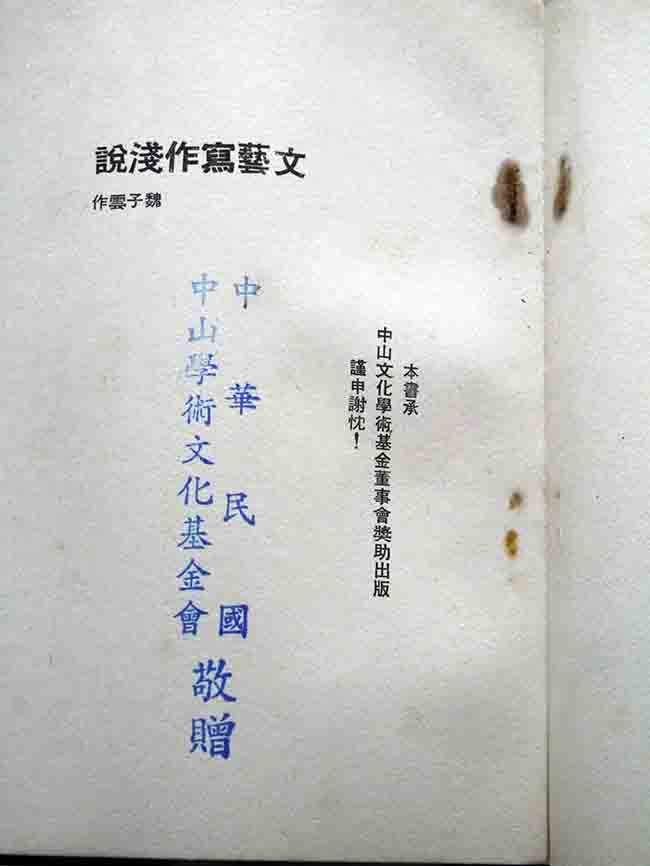 文藝寫作淺說
魏子雲作
本書承
中山文化學術基金董事會獎助出版
謹申謝忱！
中華民國
中山學術文化基金會
敬贈